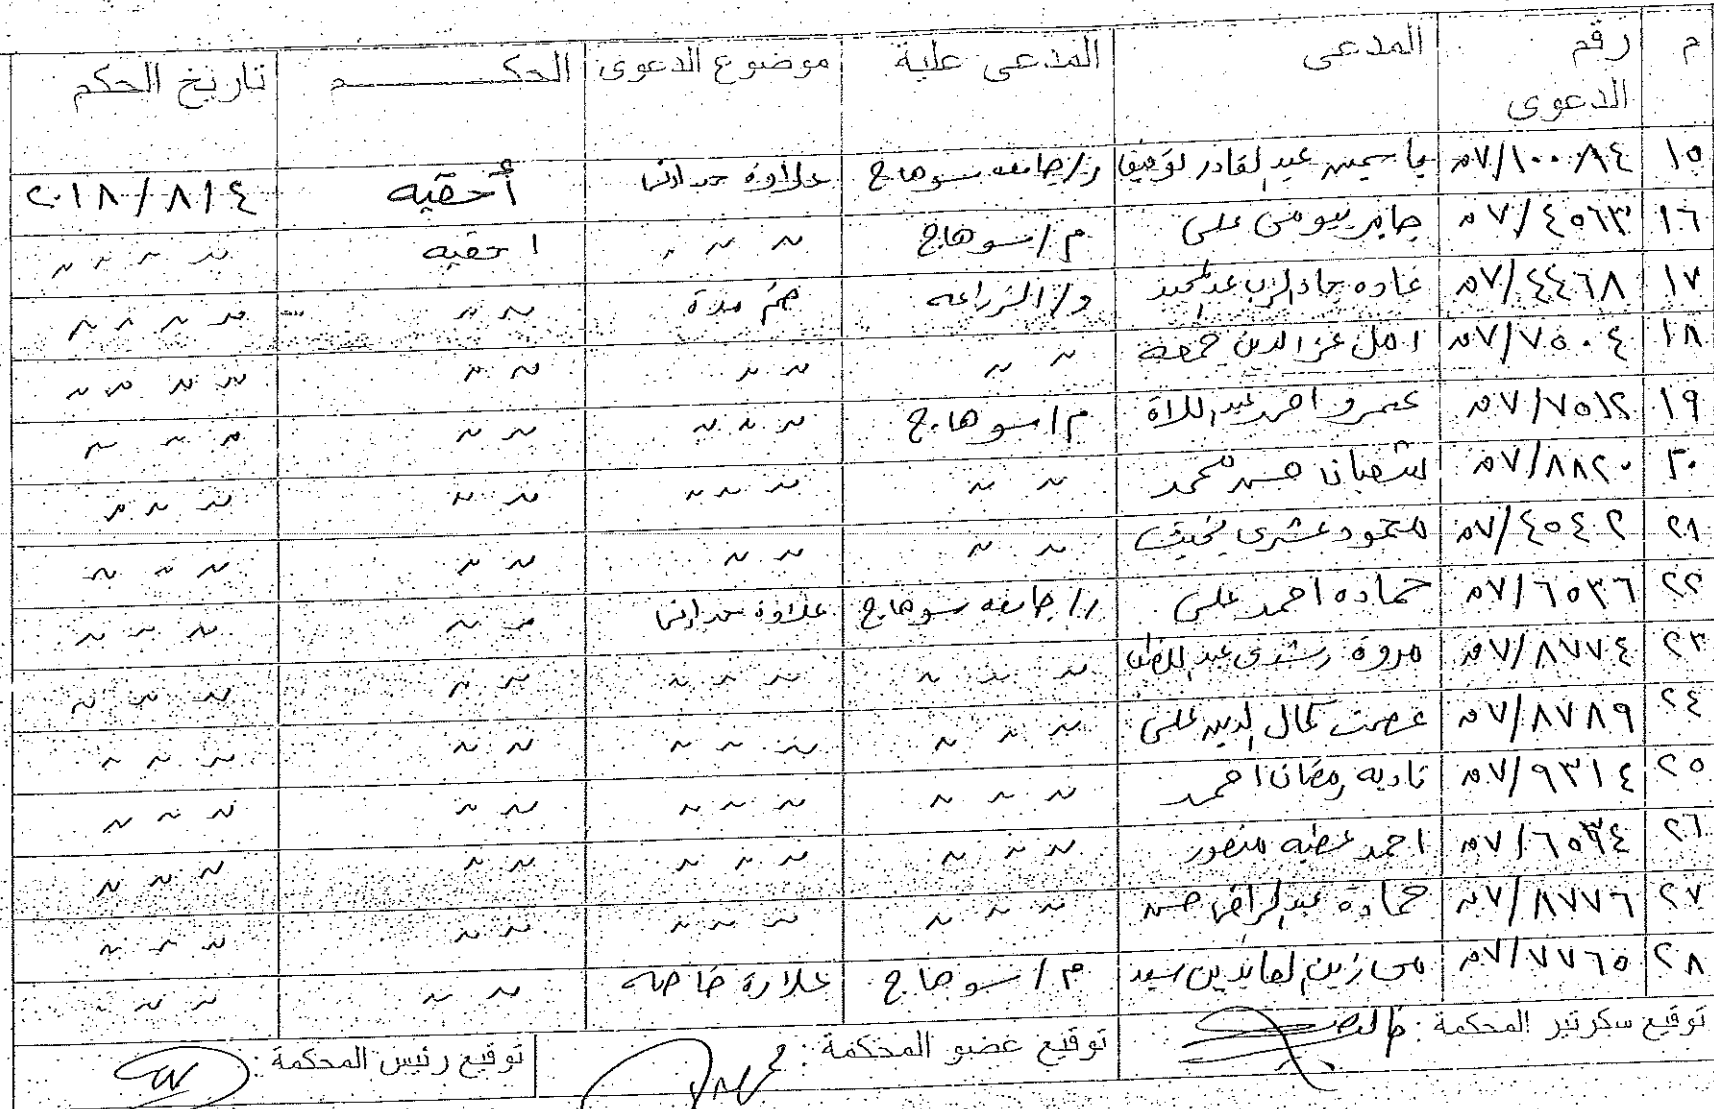 م رقم الدعوى المدعى المدعى علية موضوع الدعوى الحكم تاريخ الحكم
١٥ ١٠٠٨٤/٥٧ ياسمين عبد القادر توفيق ر/جامعه سوهاج علاوة حد ادنى أحقيه ٢٠١٨/٨/٤
١٦ ٤٥٦٣/٥٧ جابر بيومى على م/سوهاج 〃 〃 〃 احقيه 〃 〃 〃 〃
١٧ ٤٤٦٨/٥٧ غاده جاد الرب عبد المجيد و/الزراعه ضم مدة 〃 〃 〃 〃 〃 〃
١٨ ٧٥٠٤/٥٧ امل عز الدين جمعه 〃 〃 〃 〃 〃 〃 〃 〃 〃 〃
١٩ ٧٥١٢/٥٧ عمرو احمد عبد اللاة م/سوهاج 〃 〃 〃 〃 〃 〃 〃 〃
٢٠ ٨٨٢٠/٥٧ شعبان حسن محمد 〃 〃 〃 〃 〃 〃 〃 〃 〃 〃
٢١ ٤٥٤٢/٥٧ محمود عشرى بخيت 〃 〃 〃 〃 〃 〃 〃 〃 〃
٢٢ ٦٥٣٦/٥٧ حماده احمد على ر/جامعه سوهاج علاوة حد ادنى 〃 〃 〃 〃 〃
٢٣ ٨٧٧٤/٥٧ مروة رشدى عبد اللطيف 〃 〃 〃 〃 〃 〃 〃 〃 〃 〃 〃
٢٤ ٨٧٨٩/٥٧ عصمت كمال الدين على 〃 〃 〃 〃 〃 〃 〃 〃 〃 〃 〃
٢٥ ٩٣١٤/٥٧ ناديه رمضان احمد 〃 〃 〃 〃 〃 〃 〃 〃 〃 〃 〃
٢٦ ٦٥٣٤/٥٧ احمد عطيه منصور 〃 〃 〃 〃 〃 〃 〃 〃 〃 〃 〃
٢٧ ٨٧٧٦/٥٧ حمادة عبد الراضى حسن 〃 〃 〃 〃 〃 〃 〃 〃 〃 〃 〃
٢٨ ٧٧٦٥/٥٧ مى زين العابدين سيد م/سوهاج علاوة خاصه 〃 〃 〃 〃
توقيع سكرتير المحكمة : توقيع عضو المحكمة : توقيع رئيس المحكمة :